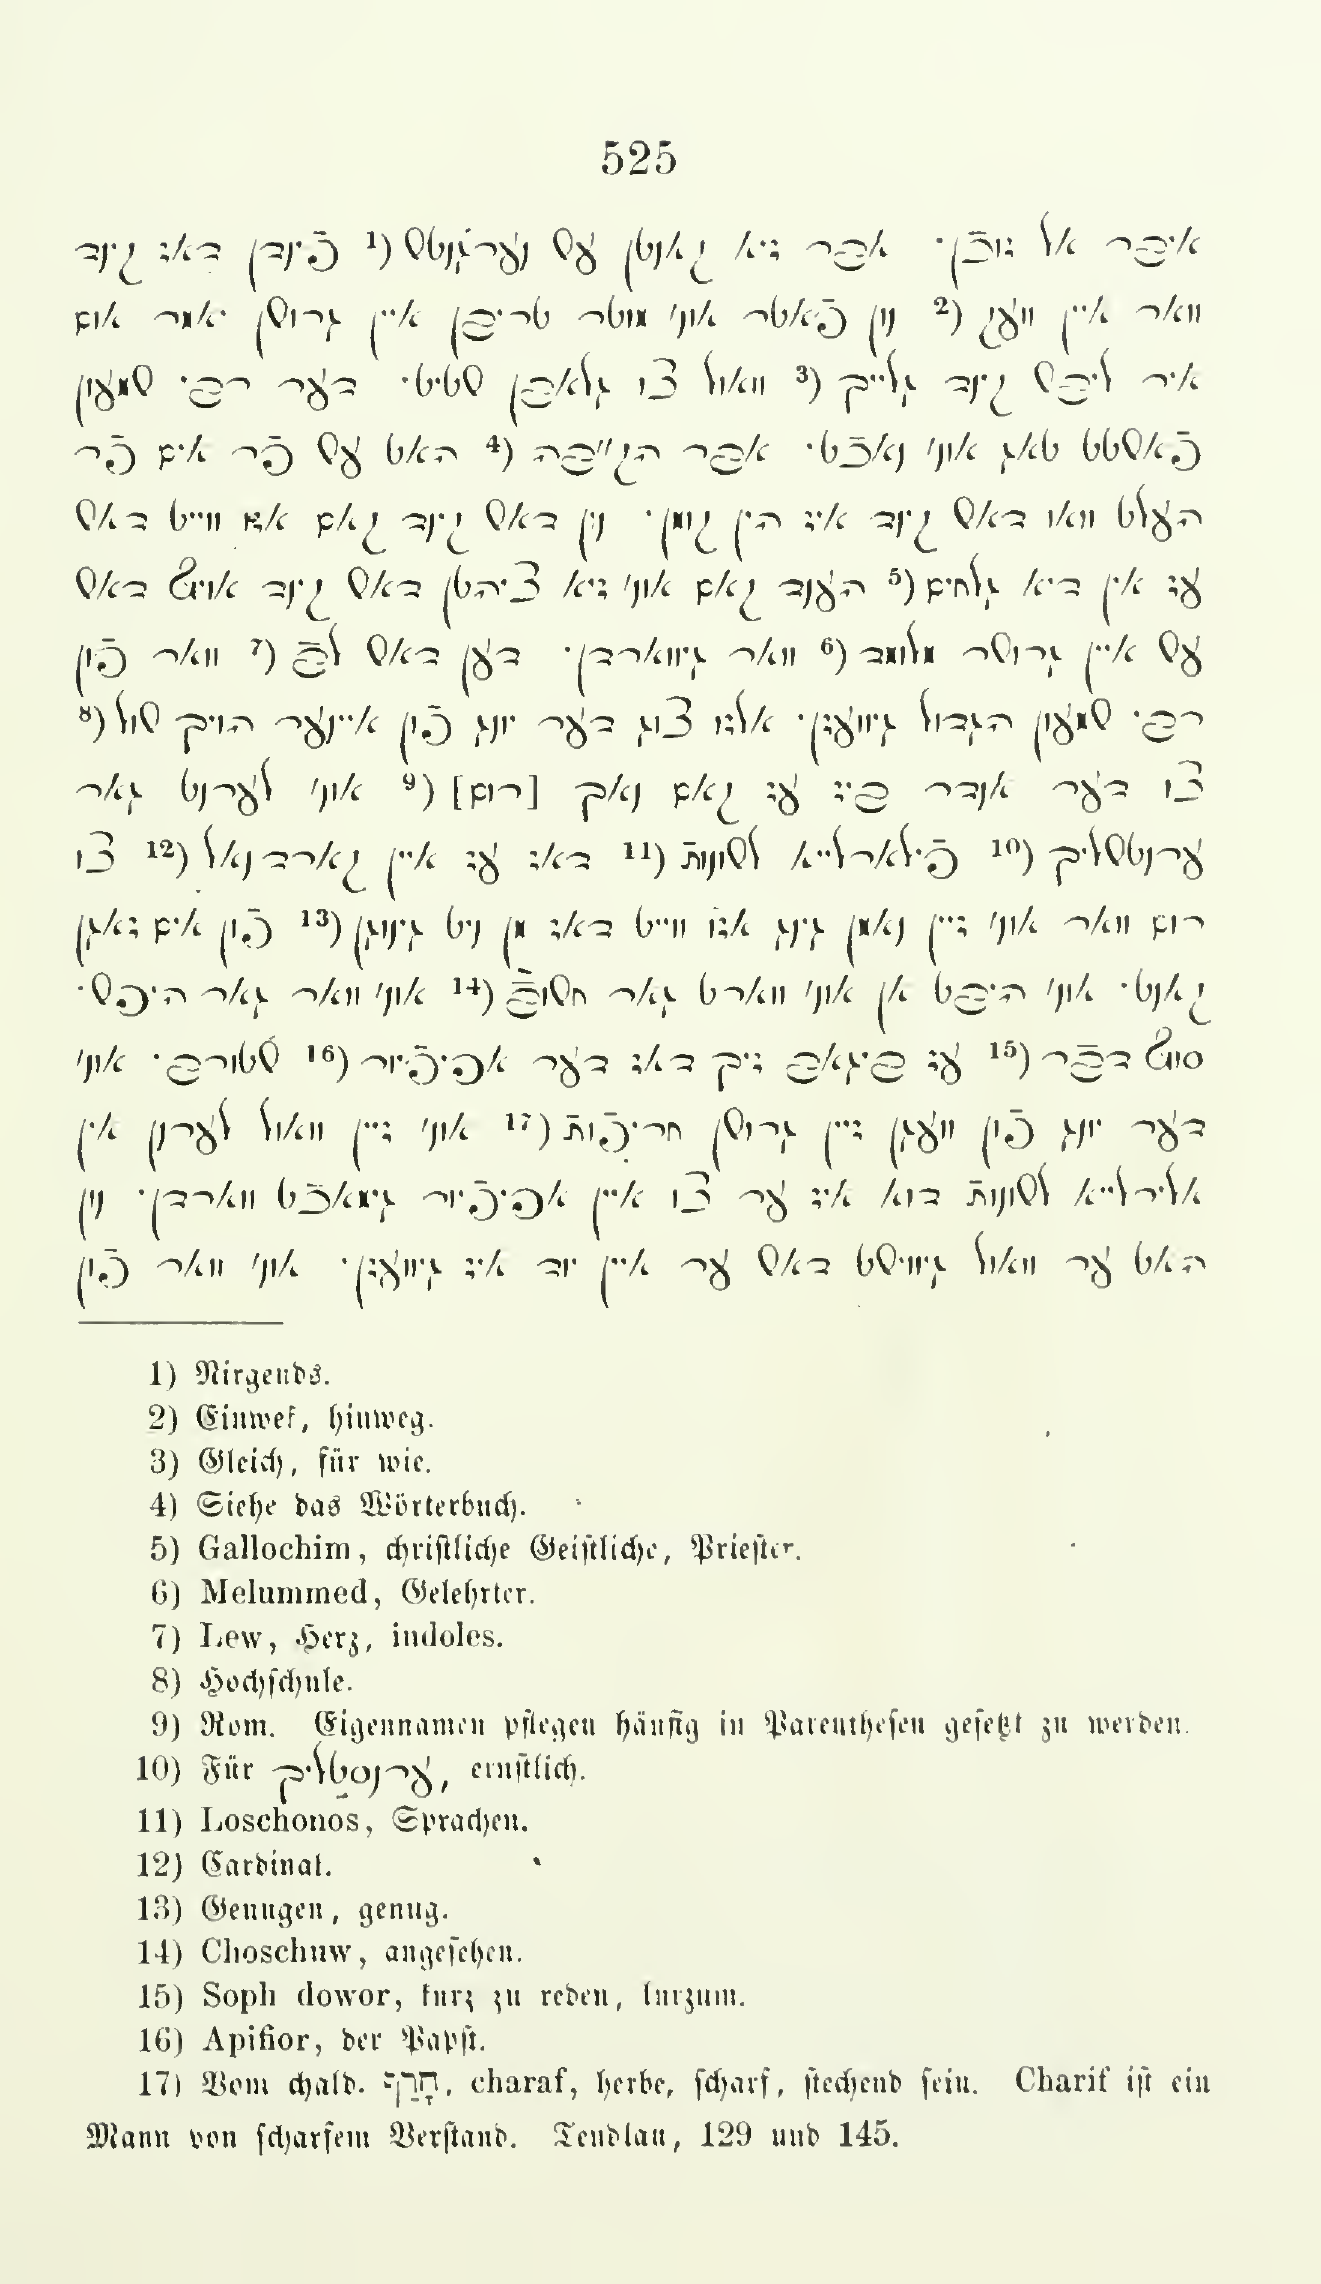 525
איבר אל זוכֿן· אבר זיא קאנטן עס נערגנטס (1 פֿינדן דאז קינד
וואר איין וועק (2 נון פֿאטר אוני מוטר טריבן איין גרוסן יאמר אום
איר ליבס קינד גלייך (3 וואול צו גלאבן סטיט· דער רבי סמעון
פֿאסטט טאג אוני נאכֿט· אבר הק״בה (4 האט עס פֿר אים פֿר
העלט וואו דאס קינד איז הין קומן· נון דאס קינד קאם אזו ווייט דאס
עז אין דיא גלחים (5 הענד קאם אוני זיא ציהטן דאס קינד אויף דאס
עס איין גרוסר מלומד (6 וואר גיווארדן· דען דאס לבֿ (7 וואר פֿון
רבי סמעון הגדול גיוועזן· אלזו צוג דער יונג פֿון איינער הויך סול (8
צו דער אנדר ביז עז קאם נאך [רום] (9 אוני לערנט גאר
ערנטסליך (10 פֿילארלייא לסונות (11 דאז עז איין קארדנאל (12 צו
רום וואר אוני זיין נאמן גינג אזו ווייט דאז מן ניט גינוגן (13 פֿון אים זאגן
קאנט· אוני היבט אן אוני ווארט גאר חסובֿ (14 אוני וואר גאר היפס·
סוף דבֿר (15 עז ביגאב זיך דאז דער אפיפֿיור (16 סטורב· אוני
דער יונג פֿון וועגן זיין גרוסן חריפֿות (17 אוני זיין וואול לערנן אין
אלירלייא לסונות דוא איז ער צו איין אפיפֿיור גימאכֿט ווארדן· נון
האט ער וואול גיוויסט דאס ער איין יוד איז גיוועזן· אוני וואר פֿון
1) Nirgends.
2) Einwek, hinweg.
3) Gleich, für wie.
4) Siehe das Wörterbuch.
5) Gallochim, christliche Geistliche, Priester.
6) Melummed, Gelehrter.
7) Lew, Herz, indoles.
8) Hochschule.
9) Rom. Eigennamen pflegen häufig in Parenthesen gesetzt zu werden.
10) Für ערנסטליך, ernstlich.
11) Loschonos, Sprachen.
12) Cardinal.
13) Genugen, genug.
14) Choschuw, angesehen.
15) Soph dowor, kurz zu reden, kurzum.
16) Apifior, der Papst.
17) Vom chald. חָרַף, charaf, herbe, scharf, stechend sein. Charif ist ein
Mann von scharfem Verstand. Tendlau, 129 und 145.